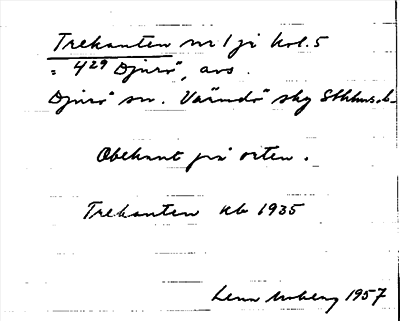 Trekanten nr 1 på kol. 5
= 4²⁹ Djurö, avs.
Djurö sn. Värmdö skg Sthlms. l.
Obekant på orten.
Trekanten kb 1935
Lenn Moberg 1957